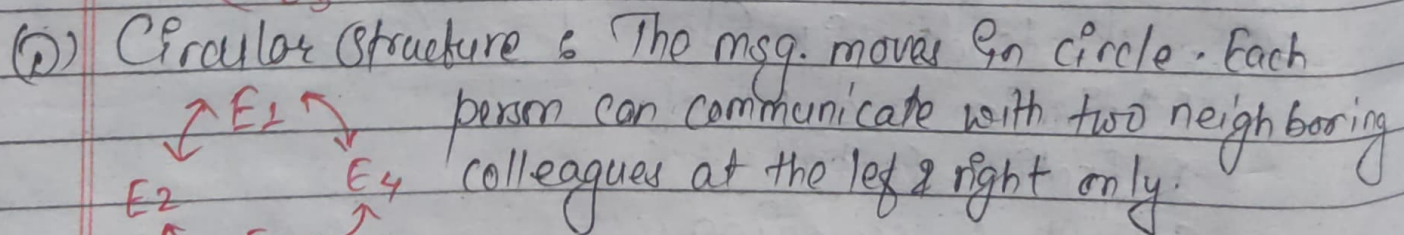 Circular Structure : The msg. moves in circle. Each
E1 person can communicate with two neighboring
E2 E4 colleagues at the lef & right only.